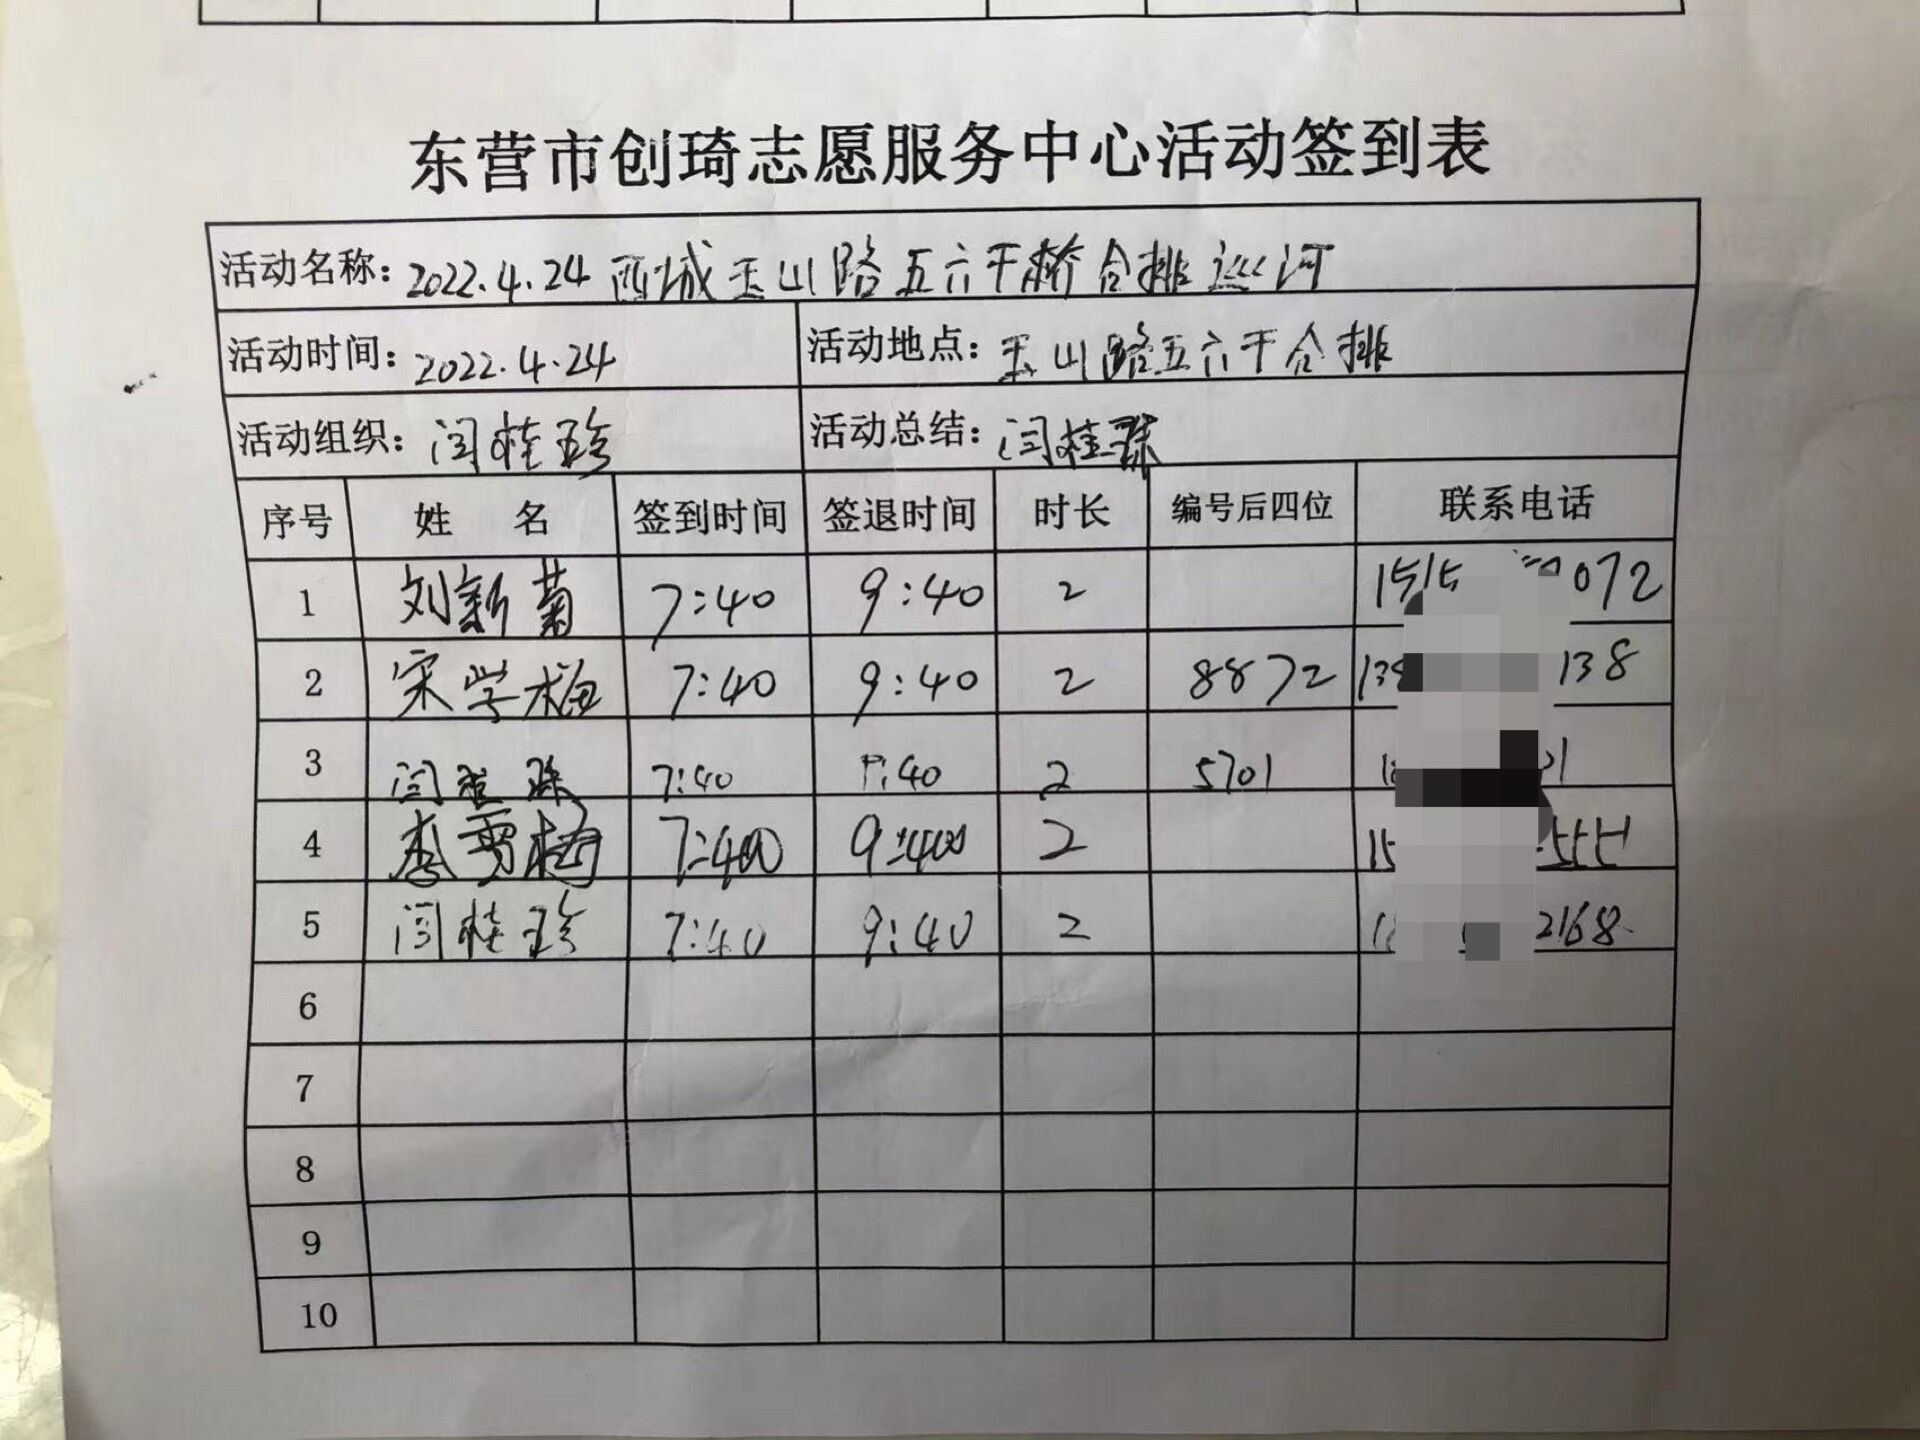 东营市创琦志愿服务中心活动签到表
活动名称：2022.4.24 西城玉山路五六干桥合排巡河
活动时间：2022.4.24 活动地点：玉山路五六干合排
活动组织：闫桂珍 活动总结：闫桂珠
序号 姓 名 签到时间 签退时间 时长 编号后四位 联系电话
1 刘新菊 7:40 9:40 2 1515 072
2 宋学梅 7:40 9:40 2 8872 138 138
3 闫桂珠 7:40 9:40 2 5701
4 李雪梅 7:40 9:40 2 15 5551
5 闫桂珍 7:40 9:40 2 2168
6
7
8
9
10